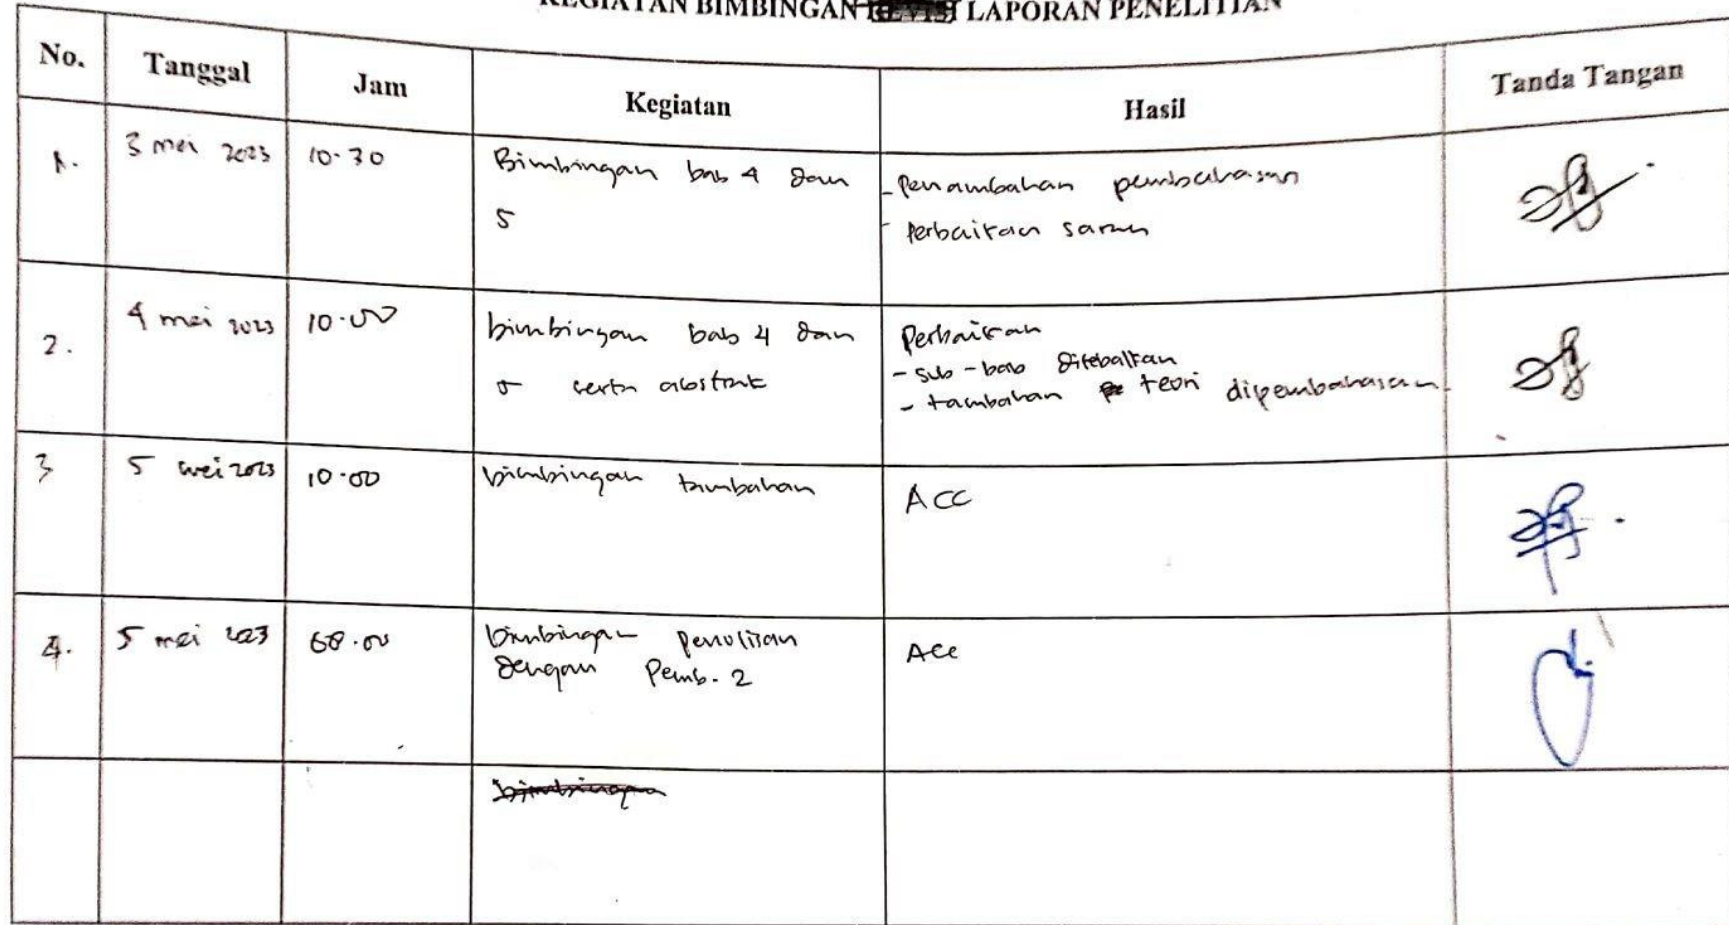 KEGIATAN BIMBINGAN REVISI LAPORAN PENELITIAN
No. Tanggal Jam Kegiatan Hasil Tanda Tangan
1. 3 mei 2023 10.30 Bimbingan bab 4 dan - Penambahan pembahasan
5 - Perbaikan saran
2. 4 mei 2023 10.00 bimbingan bab 4 dan Perbaikan
5 serta abstrak - sub-bab ditebalkan
- tambahan teori dipembahasan
3 5 mei 2023 10.00 bimbingan tambahan ACC
4. 5 mei 2023 08.00 bimbingan penulisan ACC
dengan Pemb. 2
bimbingan